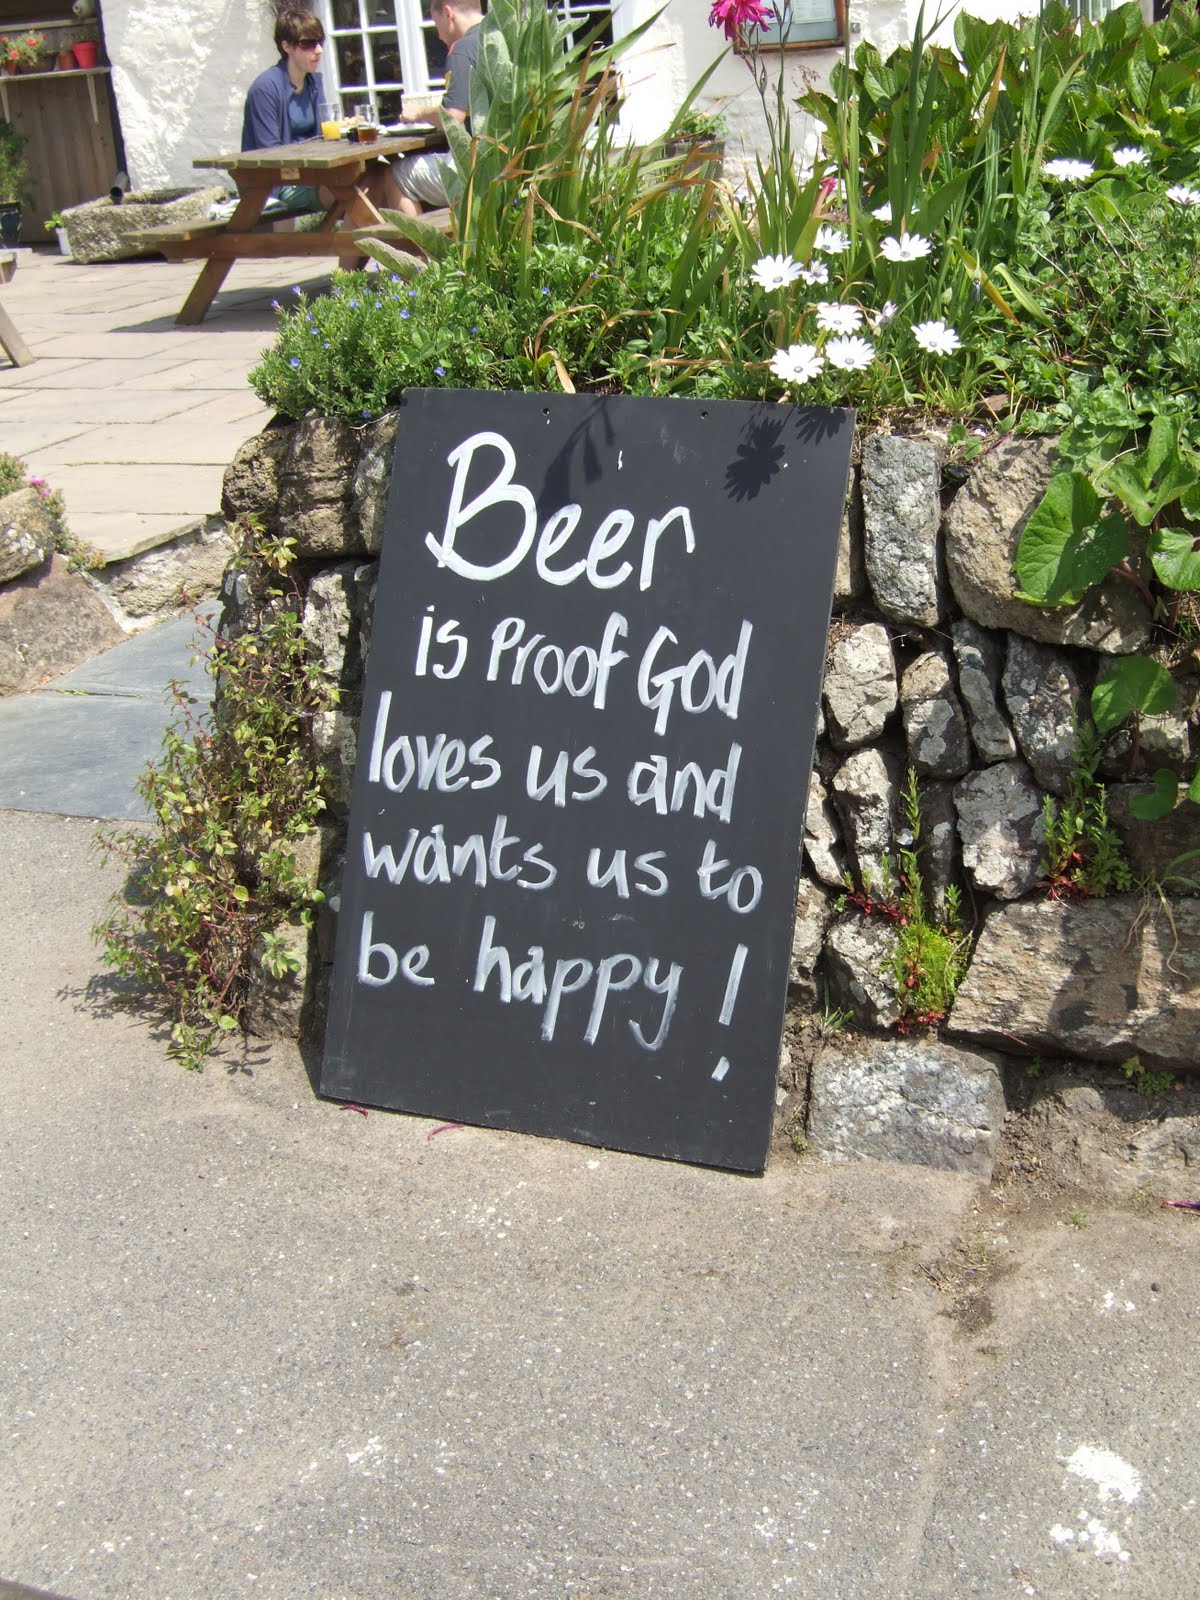 Beer
is proof God
loves us and
wants us to
be happy !